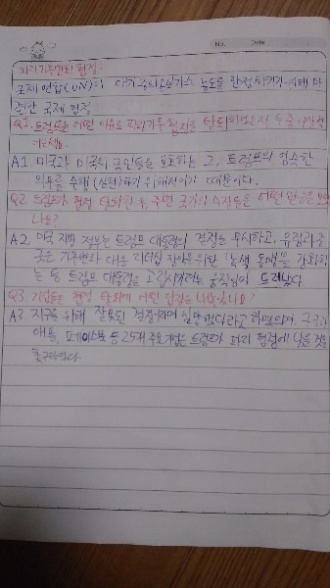 파리기후변화 협정:
국제연합(UN)이 대기중의 온실가스 농도를 안정시키기 위해 마
련한 국제 협정
Q1. 트럼프는 어떤 이유로 파리기후 탈퇴
A1. 미국과 미국의 국민들을 보호하는 그, 트럼프의 엄숙한
의무를 수행(실현)하기 위해서이기 때문이다.
Q2. 트럼프가 협정 탈퇴한 후 주변 국가의 수장들은 어떤 반응을 보였
나요?
A2. 미국 지방 정부는 트럼프 대통령의 결정을 무시하고, 유럽과 중
국은 기후변화 대응 리더십 장악을 위한 '녹색 동맹'을 강화하
는 등 트럼프 대통령을 고립시키려는 움직임이 드러났다.
Q3. 기업들은 협정 탈퇴에 어떤 입장을 나타냈나요?
A3. 지구를 위해 잘못된 결정이라며 실망했다라고 하였으며, 구글,
애플, 페이스북 등 25개 주요기업은 트럼프가 파리 협정에 남을 것을
촉구하였다.